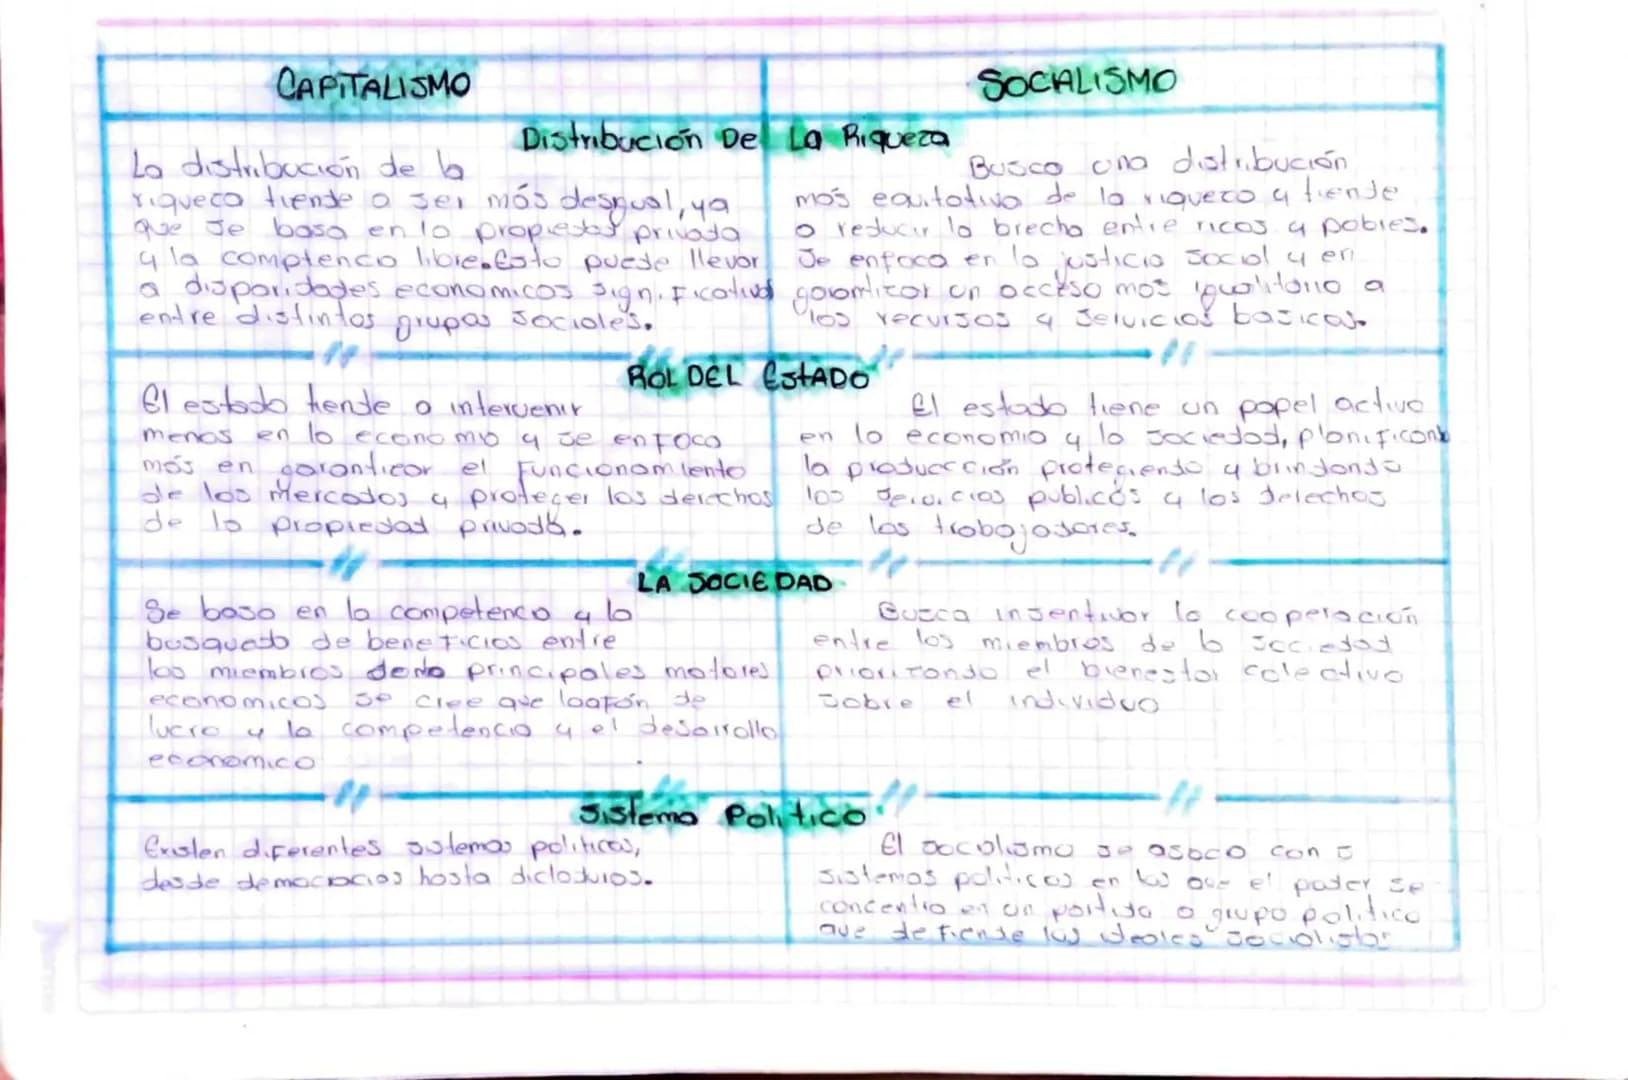 CAPITALISMO
SOCALISMO
Distribución De La Riqueza
La distribución de la
riqueca tiende a ser más desgual, ya
que se basa en la propiedad privada
y la comptenca libre. Esto puede llevar
a disparidades economicos significativas
entre distintos grupos sociales.
Busca una distribución
más equitativa de la riqueza y tiende
a reducir la brecha entre ricos y pobres.
Se enfoca en la justicia social y en
garantizar un acceso mas igualitario a
los recursos y servicios basicas.
ROL DEL EStADO
El estado tiende a intervenir
menos en la economia y se enfoca
más en garanticar el funcionamiento
de los mercados y proteger los derechos
de la propiedad privada.
El estado tiene un papel activo
en la economia y la sociedad, planificant
la produccción protegiendo y brindando
los servicios publicos y los derechos
de los trabajadores.
LA SOCIEDAD
Se basa en la competenca y la
busqueda de beneficios entre
los miembros principales motores
economicos se cree que de
lucro y la competencia y el desarrollo
economico
Busca insentivar la cooperación
entre los miembros de la sociedad
priorizando el bienestar colectivo
sobre el individuo
Sistema Politico
Existen diferentes sistemas politicos,
desde democracias hasta dictaduras.
El socialismo se asoca con
sistemas politicos en los que el poder se
concentra en un partido o grupo politico
que defiende los ideales socialistas